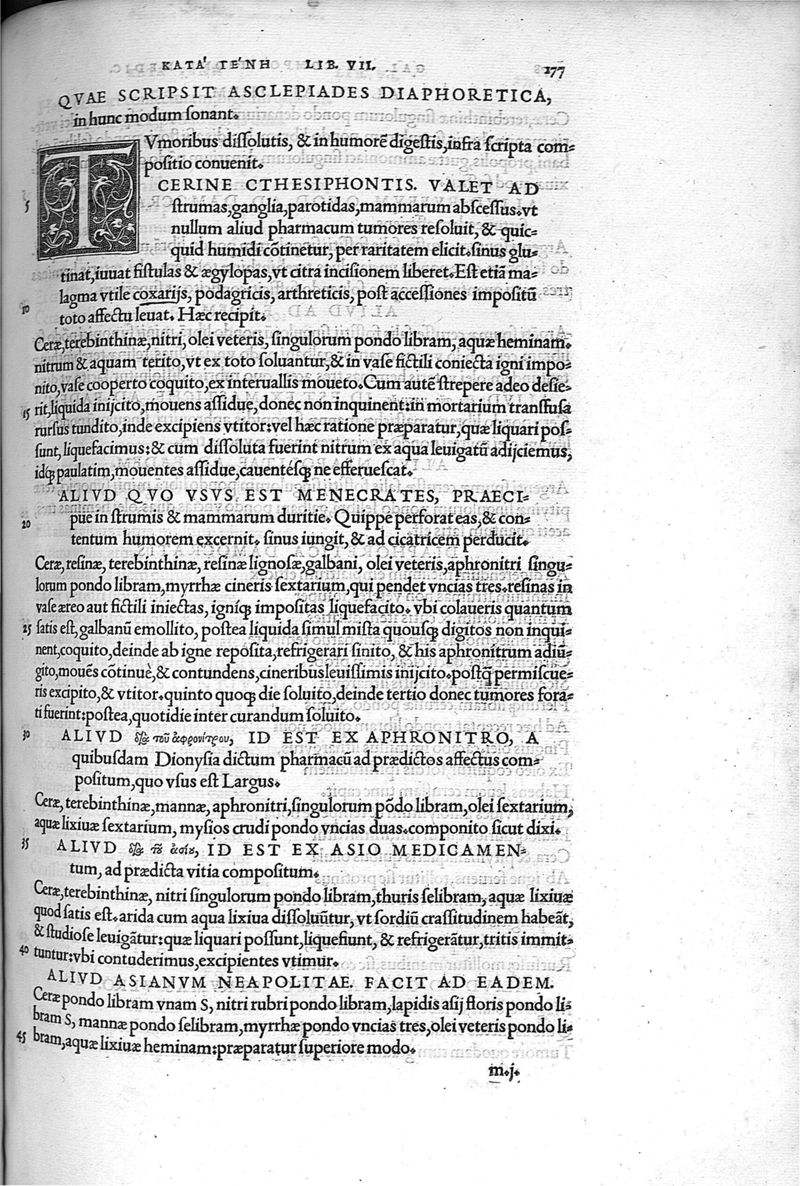 ΚΑΤΑ' ΓΕ'ΝΗ LIB. VII. 177
QVAE SCRIPSIT ASCLEPIADES DIAPHORETICA,
in hunc modum sonant.
TVmoribus dissolutis, & in humorẽ digestis, infra scripta com=
positio conuenit.
CERINE CTHESIPHONTIS. VALET AD
5 strumas, ganglia, parotidas, mammarum abscessus. vt
nullum aliud pharmacum tumores resoluit, & quic=
quid humidi cõtinetur, per raritatem elicit. sinus glu=
tinat, iuuat fistulas & ægylopas, vt citra incisionem liberet. Est etiã ma=
lagma vtile coxarijs, podagricis, arthreticis, post accessiones impositũ
10 toto affectu leuat. Hæc recipit.
Ceræ, terebinthinæ, nitri, olei veteris, singulorum pondo libram, aquæ heminam.
nitrum & aquam terito, vt ex toto soluantur, & in vase fictili coniecta igni impo=
nito, vase cooperto coquito, ex interuallis moueto. Cum autẽ strepere adeo desie=
15 rit, liquida inijcito, mouens assidue, donec non inquinent: in mortarium transfusa
rursus tundito, inde excipiens vtitor: vel hæc ratione præparatur, quæ liquari pos=
sunt, liquefacimus: & cum dissoluta fuerint nitrum ex aqua leuigatũ adijciemus,
idq; paulatim, mouentes assidue, cauentésq; ne efferuescat.
ALIVD QVO VSVS EST MENECRATES, PRAECI=
20 pue in strumis & mammarum duritie. Quippe perforat eas, & con=
tentum humorem excernit. sinus iungit, & ad cicatricem perducit.
Ceræ, resinæ, terebinthinæ, resinæ lignosæ, galbani, olei veteris, aphronitri singu=
lorum pondo libram, myrrhæ cineris sextarium, qui pendet vncias tres. resinas in
vase æreo aut fictili iniectas, igniq; impositas liquefacito. vbi colaueris quantum
25 satis est, galbanũ emollito, postea liquida simul mista quousq; digitos non inqui=
nent, coquito, deinde ab igne reposita, refrigerari sinito, & his aphronitrum adiũ=
gito, mouẽs cõtinuè, & contundens, cineribus leuissimis inijcito. postq̃ permiscue=
ris excipito, & vtitor. quinto quoq; die soluito, deinde tertio donec tumores fora=
ti fuerint: postea, quotidie inter curandum soluito.
30 ALIVD διὰ τοῦ ἀφρονίτρου, ID EST EX APHRONITRO, A
quibusdam Dionysia dictum pharmacũ ad prædictos affectus com=
positum, quo vsus est Largus.
Ceræ, terebinthinæ, mannæ, aphronitri, singulorum põdo libram, olei sextarium,
aquæ lixiuæ sextarium, mysios crudi pondo vncias duas. componito sicut dixi.
35 ALIVD διὰ τῶ ἀσίου, ID EST EX ASIO MEDICAMEN=
tum, ad prædicta vitia compositum.
Ceræ, terebinthinæ, nitri singulorum pondo libram, thuris selibram, aquæ lixiuæ
quod satis est. arida cum aqua lixiua dissoluũtur, vt sordiũ crassitudinem habeãt,
& studiose leuigãtur: quæ liquari possunt, liquefiunt, & refrigerãtur, tritis immit=
40 tuntur: vbi contuderimus, excipientes vtimur.
ALIVD ASIANVM NEAPOLITAE. FACIT AD EADEM.
Ceræ pondo libram vnam S, nitri rubri pondo libram, lapidis asij floris pondo li=
bram S, mannæ pondo selibram, myrrhæ pondo vncias tres, olei veteris pondo li=
45 bram, aquæ lixiuæ heminam: præparatur superiore modo.
m.j.